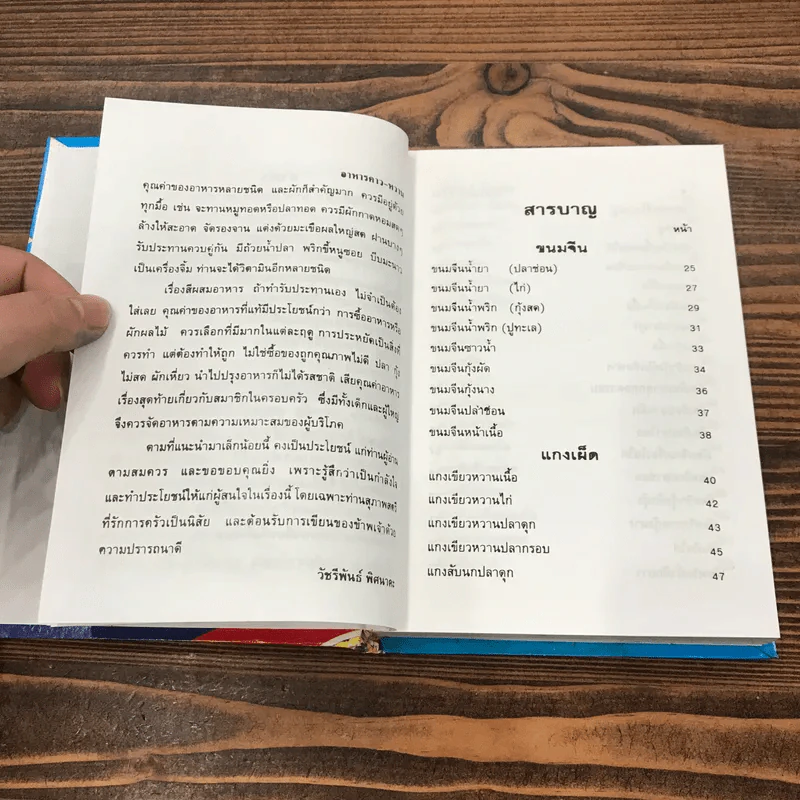 อาหารคาว-หวาน
คุณค่าของอาหารหลายชนิด และผักก็สำคัญมาก ควรมีอยู่ด้วย
ทุกมื้อ เช่น จะทานหมูทอดหรือปลาทอด ควรมีผักกาดหอมสดๆ
ล้างให้สะอาด จัดรองจาน แต่งด้วยมะเขือผลใหญ่สด ฝานบางๆ
รับประทานควบคู่กัน มีถ้วยน้ำปลา พริกขี้หนูซอย บีบมะนาว
เป็นเครื่องจิ้ม ท่านจะได้วิตามินอีกหลายชนิด
เรื่องสีผสมอาหาร ถ้าทำรับประทานเอง ไม่จำเป็นต้อง
ใส่เลย คุณค่าของอาหารที่แท้มีประโยชน์กว่า การซื้ออาหารหรือ
ผักผลไม้ ควรเลือกที่มีมากในแต่ละฤดู การประหยัดเป็นสิ่งที่
ควรทำ แต่ต้องทำให้ถูก ไม่ใช่ซื้อของถูกคุณภาพไม่ดี ปลา กุ้ง
ไม่สด ผักเหี่ยว นำไปปรุงอาหารก็ไม่ได้รสชาติ เสียคุณค่าอาหาร
เรื่องสุดท้ายเกี่ยวกับสมาชิกในครอบครัว ซึ่งมีทั้งเด็กและผู้ใหญ่
จึงควรจัดอาหารตามความเหมาะสมของผู้บริโภค
ตามที่แนะนำมาเล็กน้อยนี้ คงเป็นประโยชน์ แก่ท่านผู้อ่าน
ตามสมควร และขอขอบคุณยิ่ง เพราะรู้สึกว่าเป็นกำลังใจ
และทำประโยชน์ให้แก่ผู้สนใจในเรื่องนี้ โดยเฉพาะท่านสุภาพสตรี
ที่รักการครัวเป็นนิสัย และต้อนรับการเขียนของข้าพเจ้าด้วย
ความปรารถนาดี
วัชรีพันธ์ พิศนาคะ
สารบาญ
หน้า
ขนมจีน
ขนมจีนน้ำยา (ปลาช่อน) 25
ขนมจีนน้ำยา (ไก่) 27
ขนมจีนน้ำพริก (กุ้งสด) 29
ขนมจีนน้ำพริก (ปูทะเล) 31
ขนมจีนซาวน้ำ 33
ขนมจีนกุ้งผัด 34
ขนมจีนกุ้งนาง 36
ขนมจีนปลาช่อน 37
ขนมจีนหน้าเนื้อ 38
แกงเผ็ด
แกงเขียวหวานเนื้อ 40
แกงเขียวหวานไก่ 42
แกงเขียวหวานปลาดุก 43
แกงเขียวหวานปลากรอบ 45
แกงสับนกปลาดุก 47